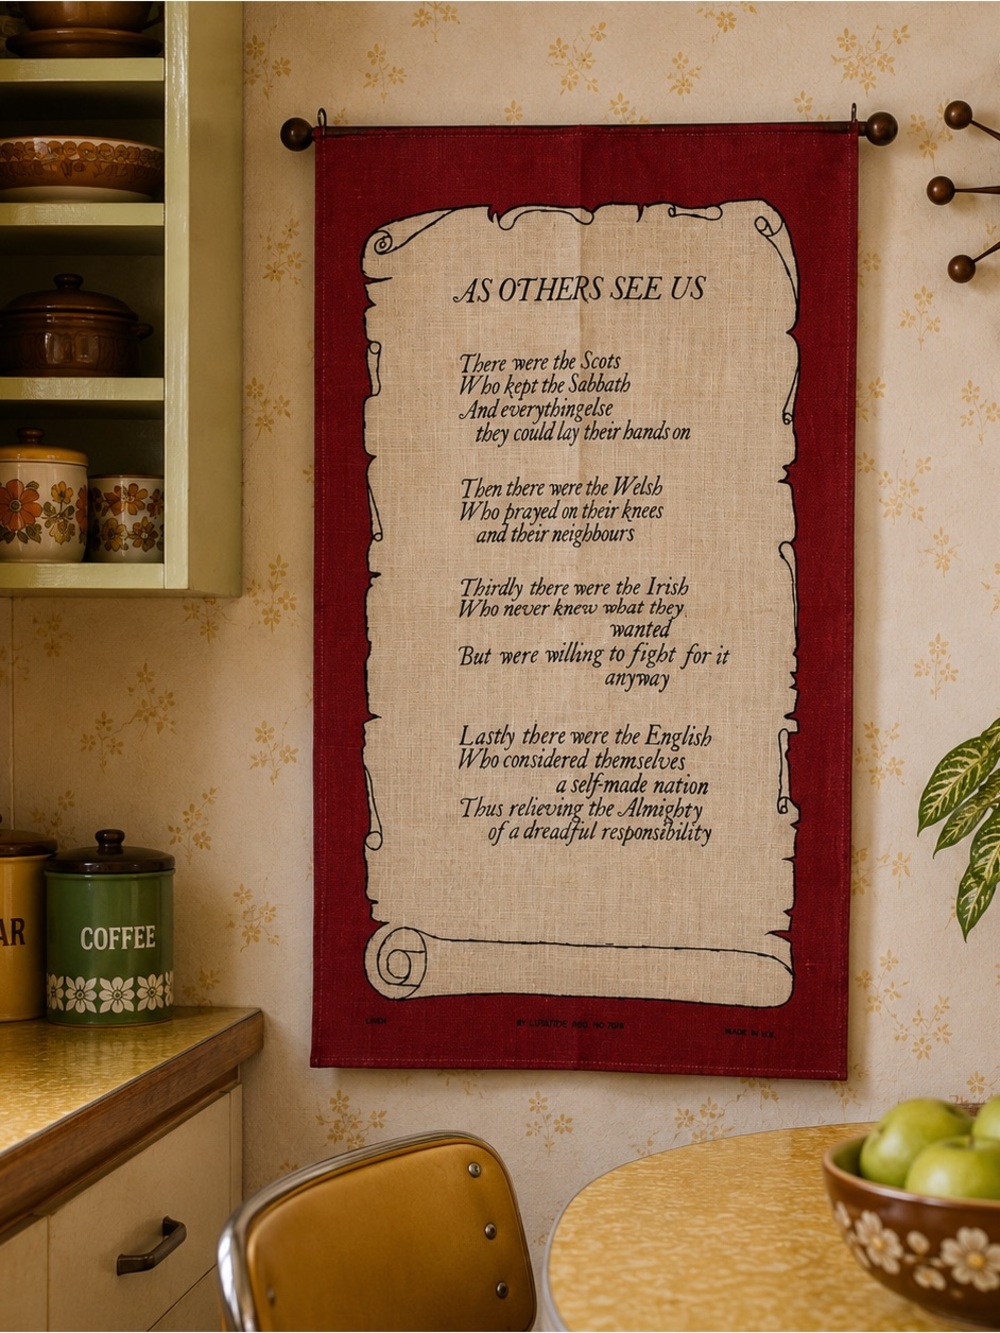 AS OTHERS SEE US
There were the Scots
Who kept the Sabbath
And everythingelse
they could lay their hands on
Then there were the Welsh
Who prayed on their knees
and their neighbours
Thirdly there were the Irish
Who never knew what they
wanted
But were willing to fight for it
anyway
Lastly there were the English
Who considered themselves
a self-made nation
Thus relieving the Almighty
of a dreadful responsibility
AR
COFFEE
LINEN
BY REG. NO
MADE IN U.K.